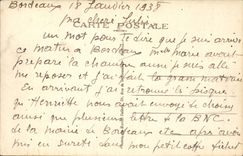 Bordeaux 18 Janvier 1938
ma chère
CARTE POSTALE
un mot pour te dire que je suis arrivé
ce matin à Bordeaux ma mère avait
préparé la chambre aussi je suis allé
me reposer et j'ai fait la grasse matinée
En arrivant j'ai retrouvé le
qu'Henriette nous avait envoyé
ainsi que plusieurs lettres de la B.N.C.
de la mairie de Bordeaux et après avoir
mis en sureté dans mon petit